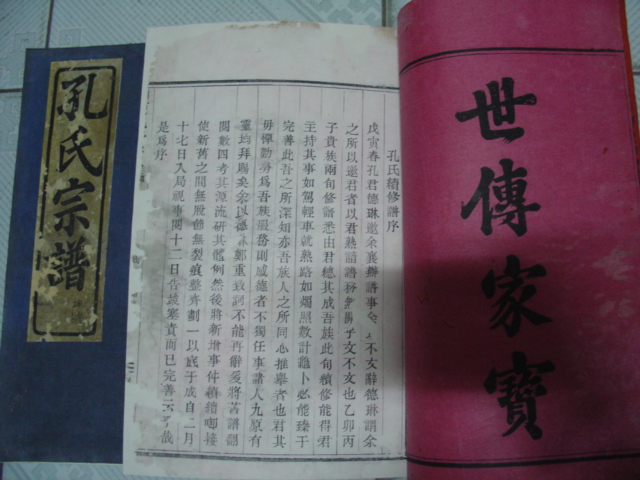 世傳家寶
孔氏續修譜序
戊寅春孔君德琳邀余襄辦譜事余以不文辭德琳謂余
之所以邀君者以君熟諳譜務
子文不文也乙卯丙
子貴族兩句修譜悉由君總其成吾族此旬續修能得君
主持其事如駕輕車就熟路如燭照數計龜卜必能臻于
完善此吾之所深知亦吾族人之所同心推舉者也君其
毋憚勤勞爲吾族服務則感德者不獨任事諸人九原有
靈均拜賜矣余以德琳鄭重致詞不能再辭爰將舊譜調
閱數四考其源流研其體例然後將新增事件續續啣接
使新舊之間無股節無裂痕整齊劃一以底于成自二月
十七日入局視事閱十二日告竣塞責而已完善云乎哉
是爲序
孔氏宗譜